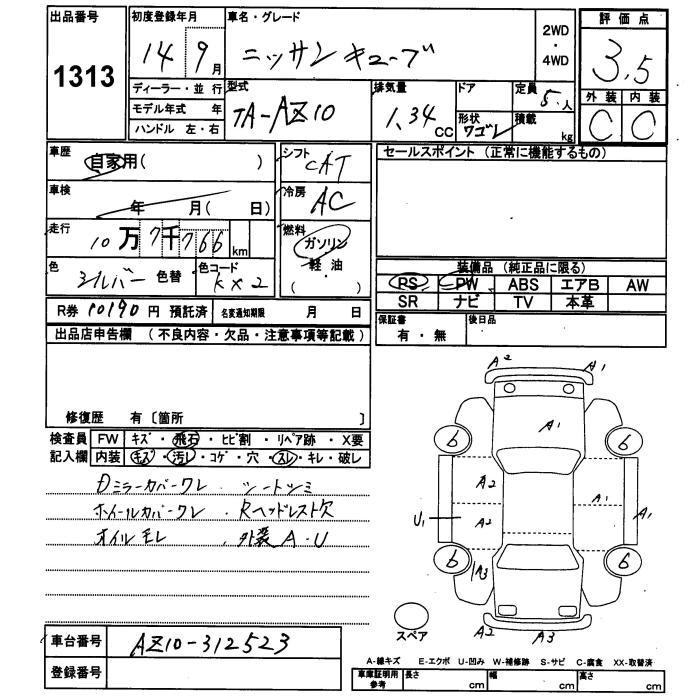 出品番号 初度登録年月 車名・グレード 2WD ・ 4WD 評価点
1313 14 9月 ニッサン キューブ 3.5
ディーラー・並行 型式 排気量 ドア 定員 5.人 外装 内装
モデル年式 年 TA-AZ10 1.34 CC 形状 ワゴン 積載 kg C C
ハンドル 左・右
車歴 自家用( ) シフト CAT セールスポイント (正常に機能するもの)
車検 年 月( 日) 冷房 AC
走行 10万7千766 km 燃料 ガソリン
軽・油
( )
色 シルバー 色替 色コード KX2
装備品 (純正品に限る)
PS PW ABS エアB AW
SR ナビ TV 本革
R券 10190 円 預託済 名変通知期限 月 日
保証書 有・無 後日品
出品店申告欄 (不良内容・欠品・注意事項等記載)
修復歴 有〔箇所 〕
検査員 FW キズ・飛石・ヒビ割・リペア跡・X要
記入欄 内装 キズ・汚レ・コゲ・穴・スレ・キレ・破レ
Dミラーカバーワレ . シートシミ
ホイールカバーワレ . Rヘッドレスト欠
オイルモレ . 外装 A・U
A2 A1
A1
6 6
A2 A1 A1
U1 A2
6 6
A3
スペア A2 A3
車台番号 AZ10-312523
登録番号
A-線キズ E-エクボ U-凹み W-補修跡 S-サビ C-腐食 XX-取替済
車庫証明用参考 長さ cm 幅 cm 高さ cm